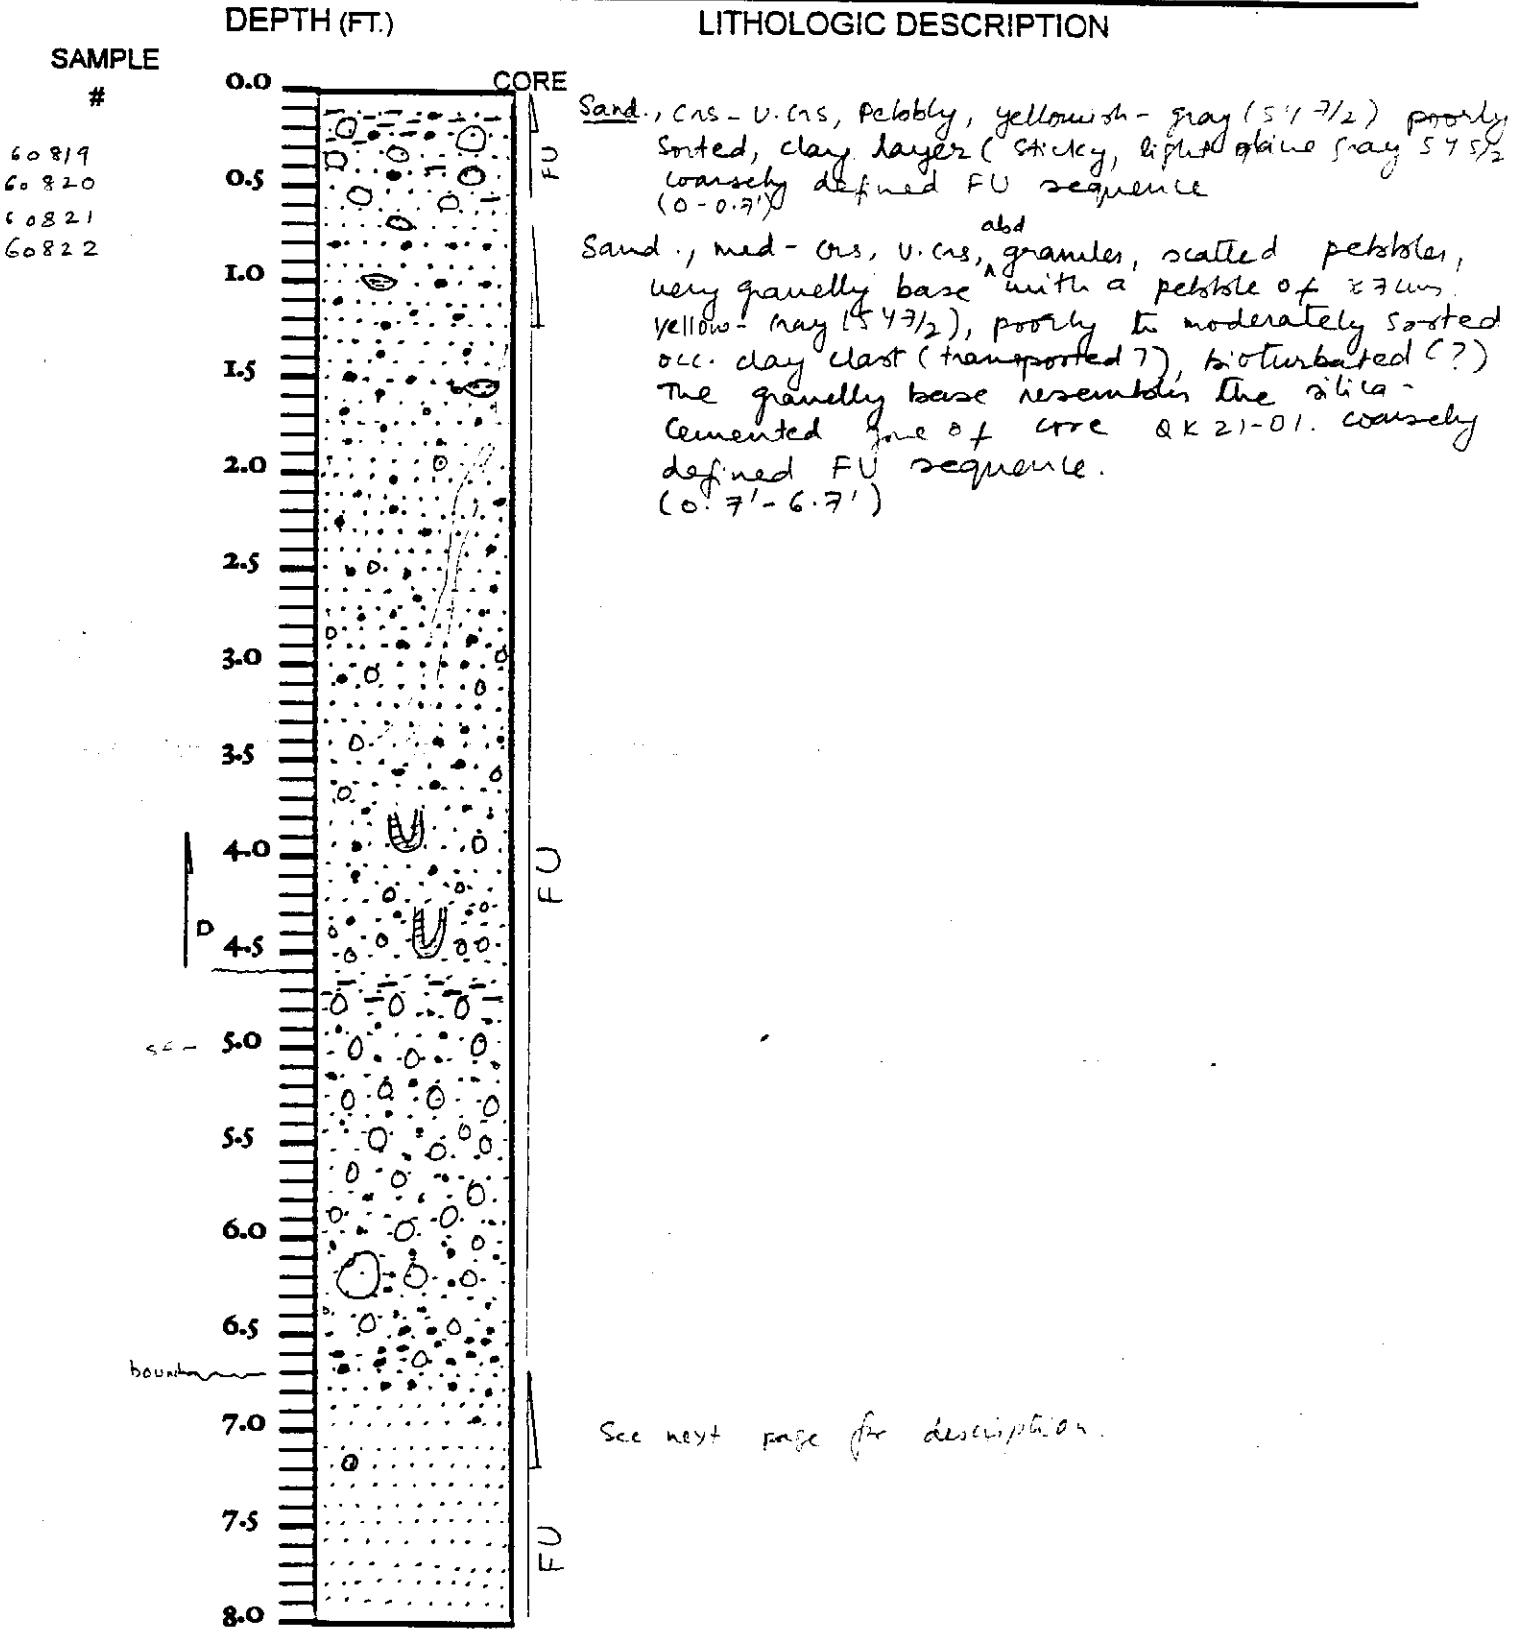 DEPTH (FT.)
LITHOLOGIC DESCRIPTION
SAMPLE
#
CORE
60819
60820
60821
60822
0.0
0.5
1.0
1.5
2.0
2.5
3.0
3.5
4.0
4.5
5.0
5.5
6.0
6.5
7.0
7.5
8.0
D
FU
FU
FU
Sand., crs - v. crs, Pebbly, yellowish - gray (5Y 7/2) poorly
Sorted, clay layer (sticky, light olive gray 5Y 5/2
coarsely defined FU sequence
(0-0.7')
abd
Sand., med - crs, v. crs, granules, scatted pebbles,
very gravelly base with a pebble of ≈7cms.
yellow-gray (5Y 7/2), poorly to moderately sorted
occ. clay clast (transported?), bioturbated (?)
The gravelly base resembles the silica-
cemented zone of core QK21-01. coarsely
defined FU sequence.
(0.7'-6.7')
See next page for description.